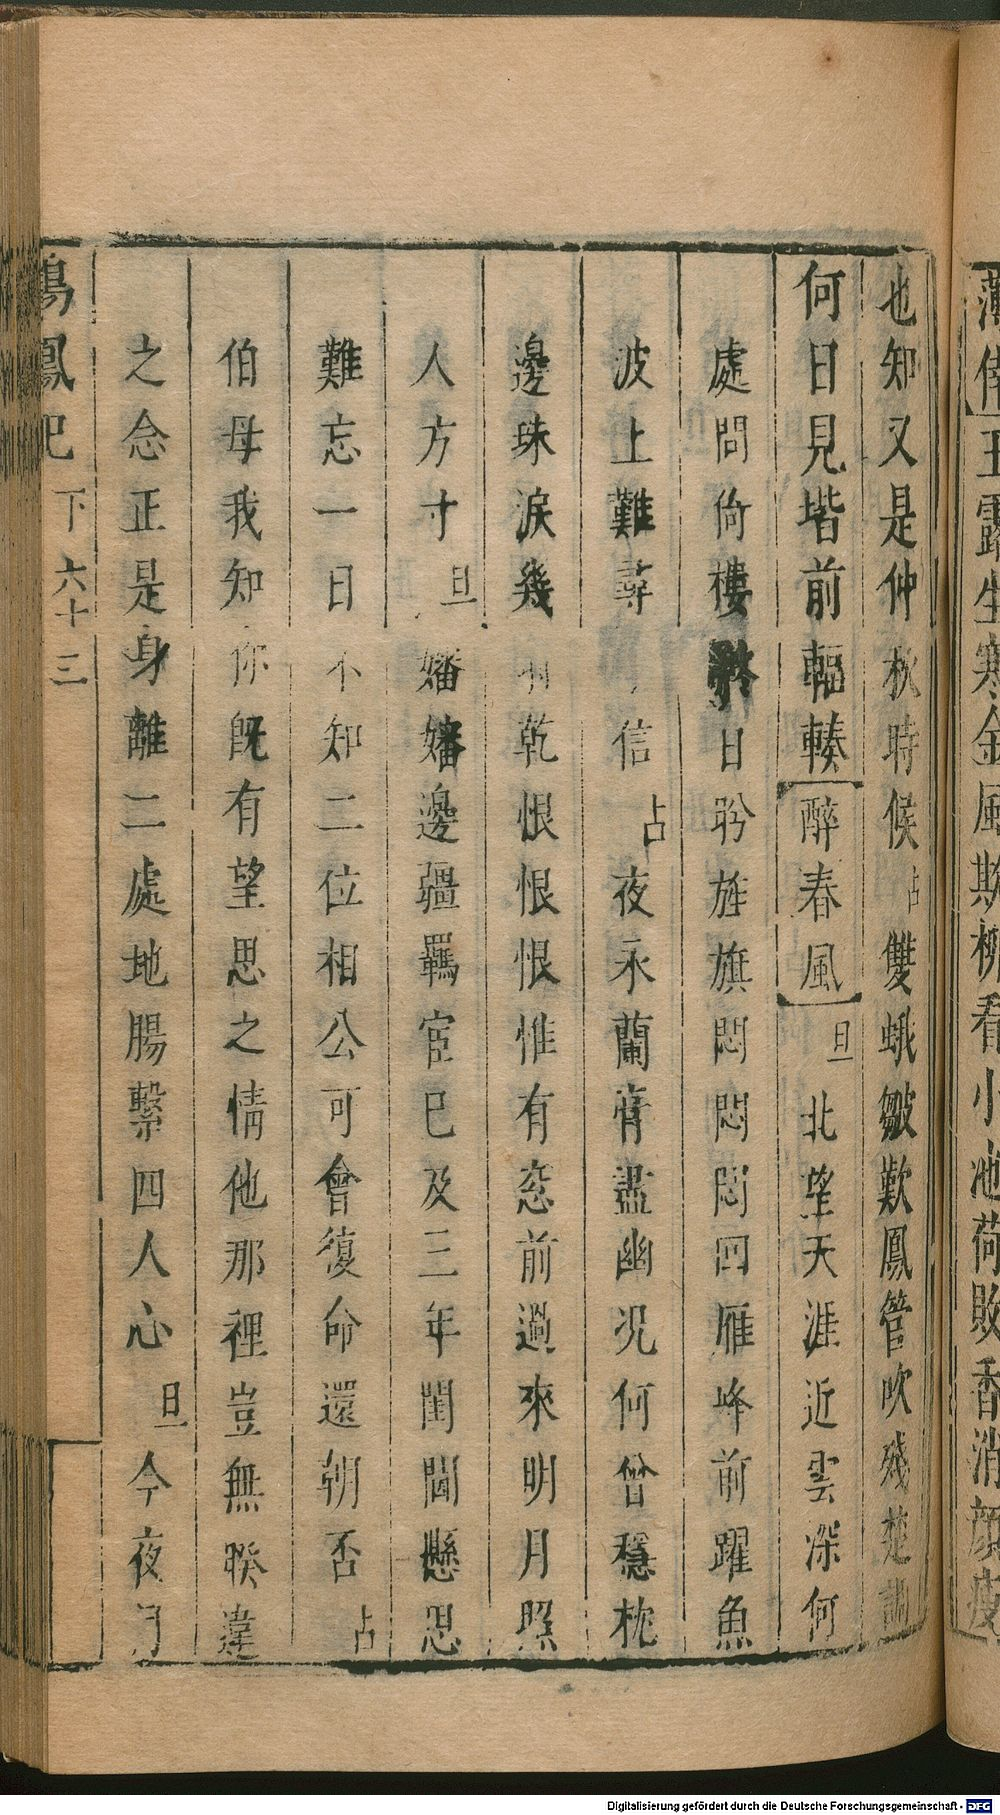 薄倖 玉露生寒金風斯柳看小池荷敗香消顔痩
也知又是仲秋時候占雙蛾皺歎鳳管吹殘楚調
何日見堦前輻輳醉春風旦北望天涯近雲深何
處問倚樓 日盻旌旗悶悶悶回雁峰前躍魚
波上難尋 信占夜永蘭膏盡幽况何曾穩枕
邊珠淚幾 乾恨恨恨惟有窓前過來明月照
人方寸旦嬸嬸邊疆羈宦已及三年閨閫懸思
難忘一日不知二位相公可會復命還朝否占
伯母我知你既有望思之情他那裡豈無暌違
之念正是身離二處地腸繫四人心旦今夜月
鳳 下 六十三
Digitalisierung gefördert durch die Deutsche Forschungsgemeinschaft - DFG